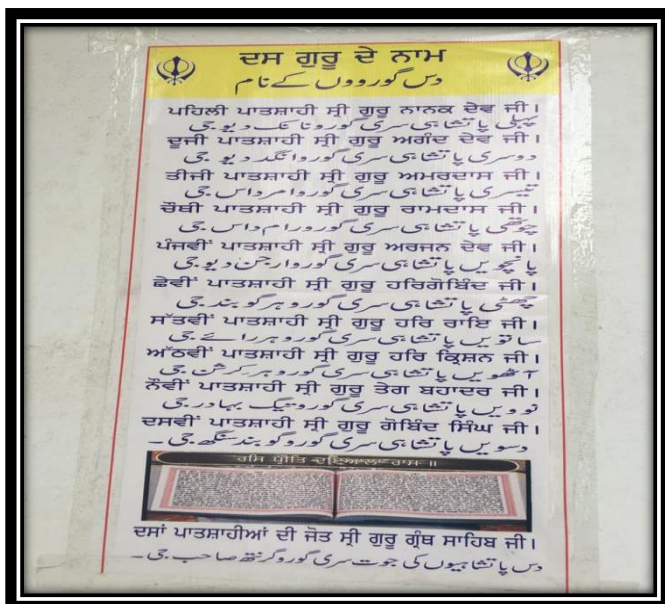 ਦਸ ਗੁਰੂ ਦੇ ਨਾਮ
دس گورووں کے نام
ਪਹਿਲੀ ਪਾਤਸ਼ਾਹੀ ਸ੍ਰੀ ਗੁਰੂ ਨਾਨਕ ਦੇਵ ਜੀ।
پہلی پاتشاہی سری گورونانک دیو جی
ਦੂਜੀ ਪਾਤਸ਼ਾਹੀ ਸ੍ਰੀ ਗੁਰੂ ਅਗੰਦ ਦੇਵ ਜੀ।
دوسری پاتشاہی سری گوروانگد دیو جی
ਤੀਜੀ ਪਾਤਸ਼ਾਹੀ ਸ੍ਰੀ ਗੁਰੂ ਅਮਰਦਾਸ ਜੀ।
تیسری پاتشاہی سری گوروامرداس جی
ਚੌਥੀ ਪਾਤਸ਼ਾਹੀ ਸ੍ਰੀ ਗੁਰੂ ਰਾਮਦਾਸ ਜੀ।
چوتھی پاتشاہی سری گورورام داس جی
ਪੰਜਵੀਂ ਪਾਤਸ਼ਾਹੀ ਸ੍ਰੀ ਗੁਰੂ ਅਰਜਨ ਦੇਵ ਜੀ।
پانچویں پاتشاہی سری گوروارجن دیو جی
ਛੇਵੀਂ ਪਾਤਸ਼ਾਹੀ ਸ੍ਰੀ ਗੁਰੂ ਹਰਿਗੋਬਿੰਦ ਜੀ।
چھٹی پاتشاہی سری گوروہرگوبند جی
ਸੱਤਵੀਂ ਪਾਤਸ਼ਾਹੀ ਸ੍ਰੀ ਗੁਰੂ ਹਰਿ ਰਾਇ ਜੀ।
ساتویں پاتشاہی سری گوروہررائے جی
ਅੱਠਵੀਂ ਪਾਤਸ਼ਾਹੀ ਸ੍ਰੀ ਗੁਰੂ ਹਰਿ ਕ੍ਰਿਸ਼ਨ ਜੀ।
آٹھویں پاتشاہی سری گوروہرکرشن جی
ਨੌਵੀਂ ਪਾਤਸ਼ਾਹੀ ਸ੍ਰੀ ਗੁਰੂ ਤੇਗ ਬਹਾਦਰ ਜੀ।
نوویں پاتشاہی سری گوروتیگ بہادر جی
ਦਸਵੀਂ ਪਾਤਸ਼ਾਹੀ ਸ੍ਰੀ ਗੁਰੂ ਗੋਬਿੰਦ ਸਿੰਘ ਜੀ।
دسویں پاتشاہی سری گوروگوبند سنگھ جی۔
ਦਸਾਂ ਪਾਤਸ਼ਾਹੀਆਂ ਦੀ ਜੋਤ ਸ੍ਰੀ ਗੁਰੂ ਗ੍ਰੰਥ ਸਾਹਿਬ ਜੀ।
دس پاتشاہیوں کی جوت سری گوروگرنتھ صاحب جی۔